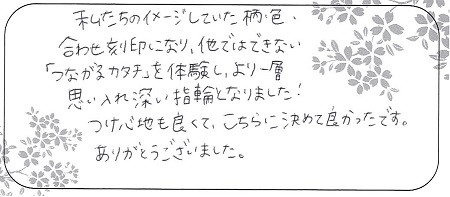 私たちのイメージしていた柄・色、
合わせ刻印になり、他ではできない
「つながるカタチ」を体験し、より一層
思い入れ深い指輪となりました！
つけ心地も良くて、こちらに決めて良かったです。
ありがとうございました。